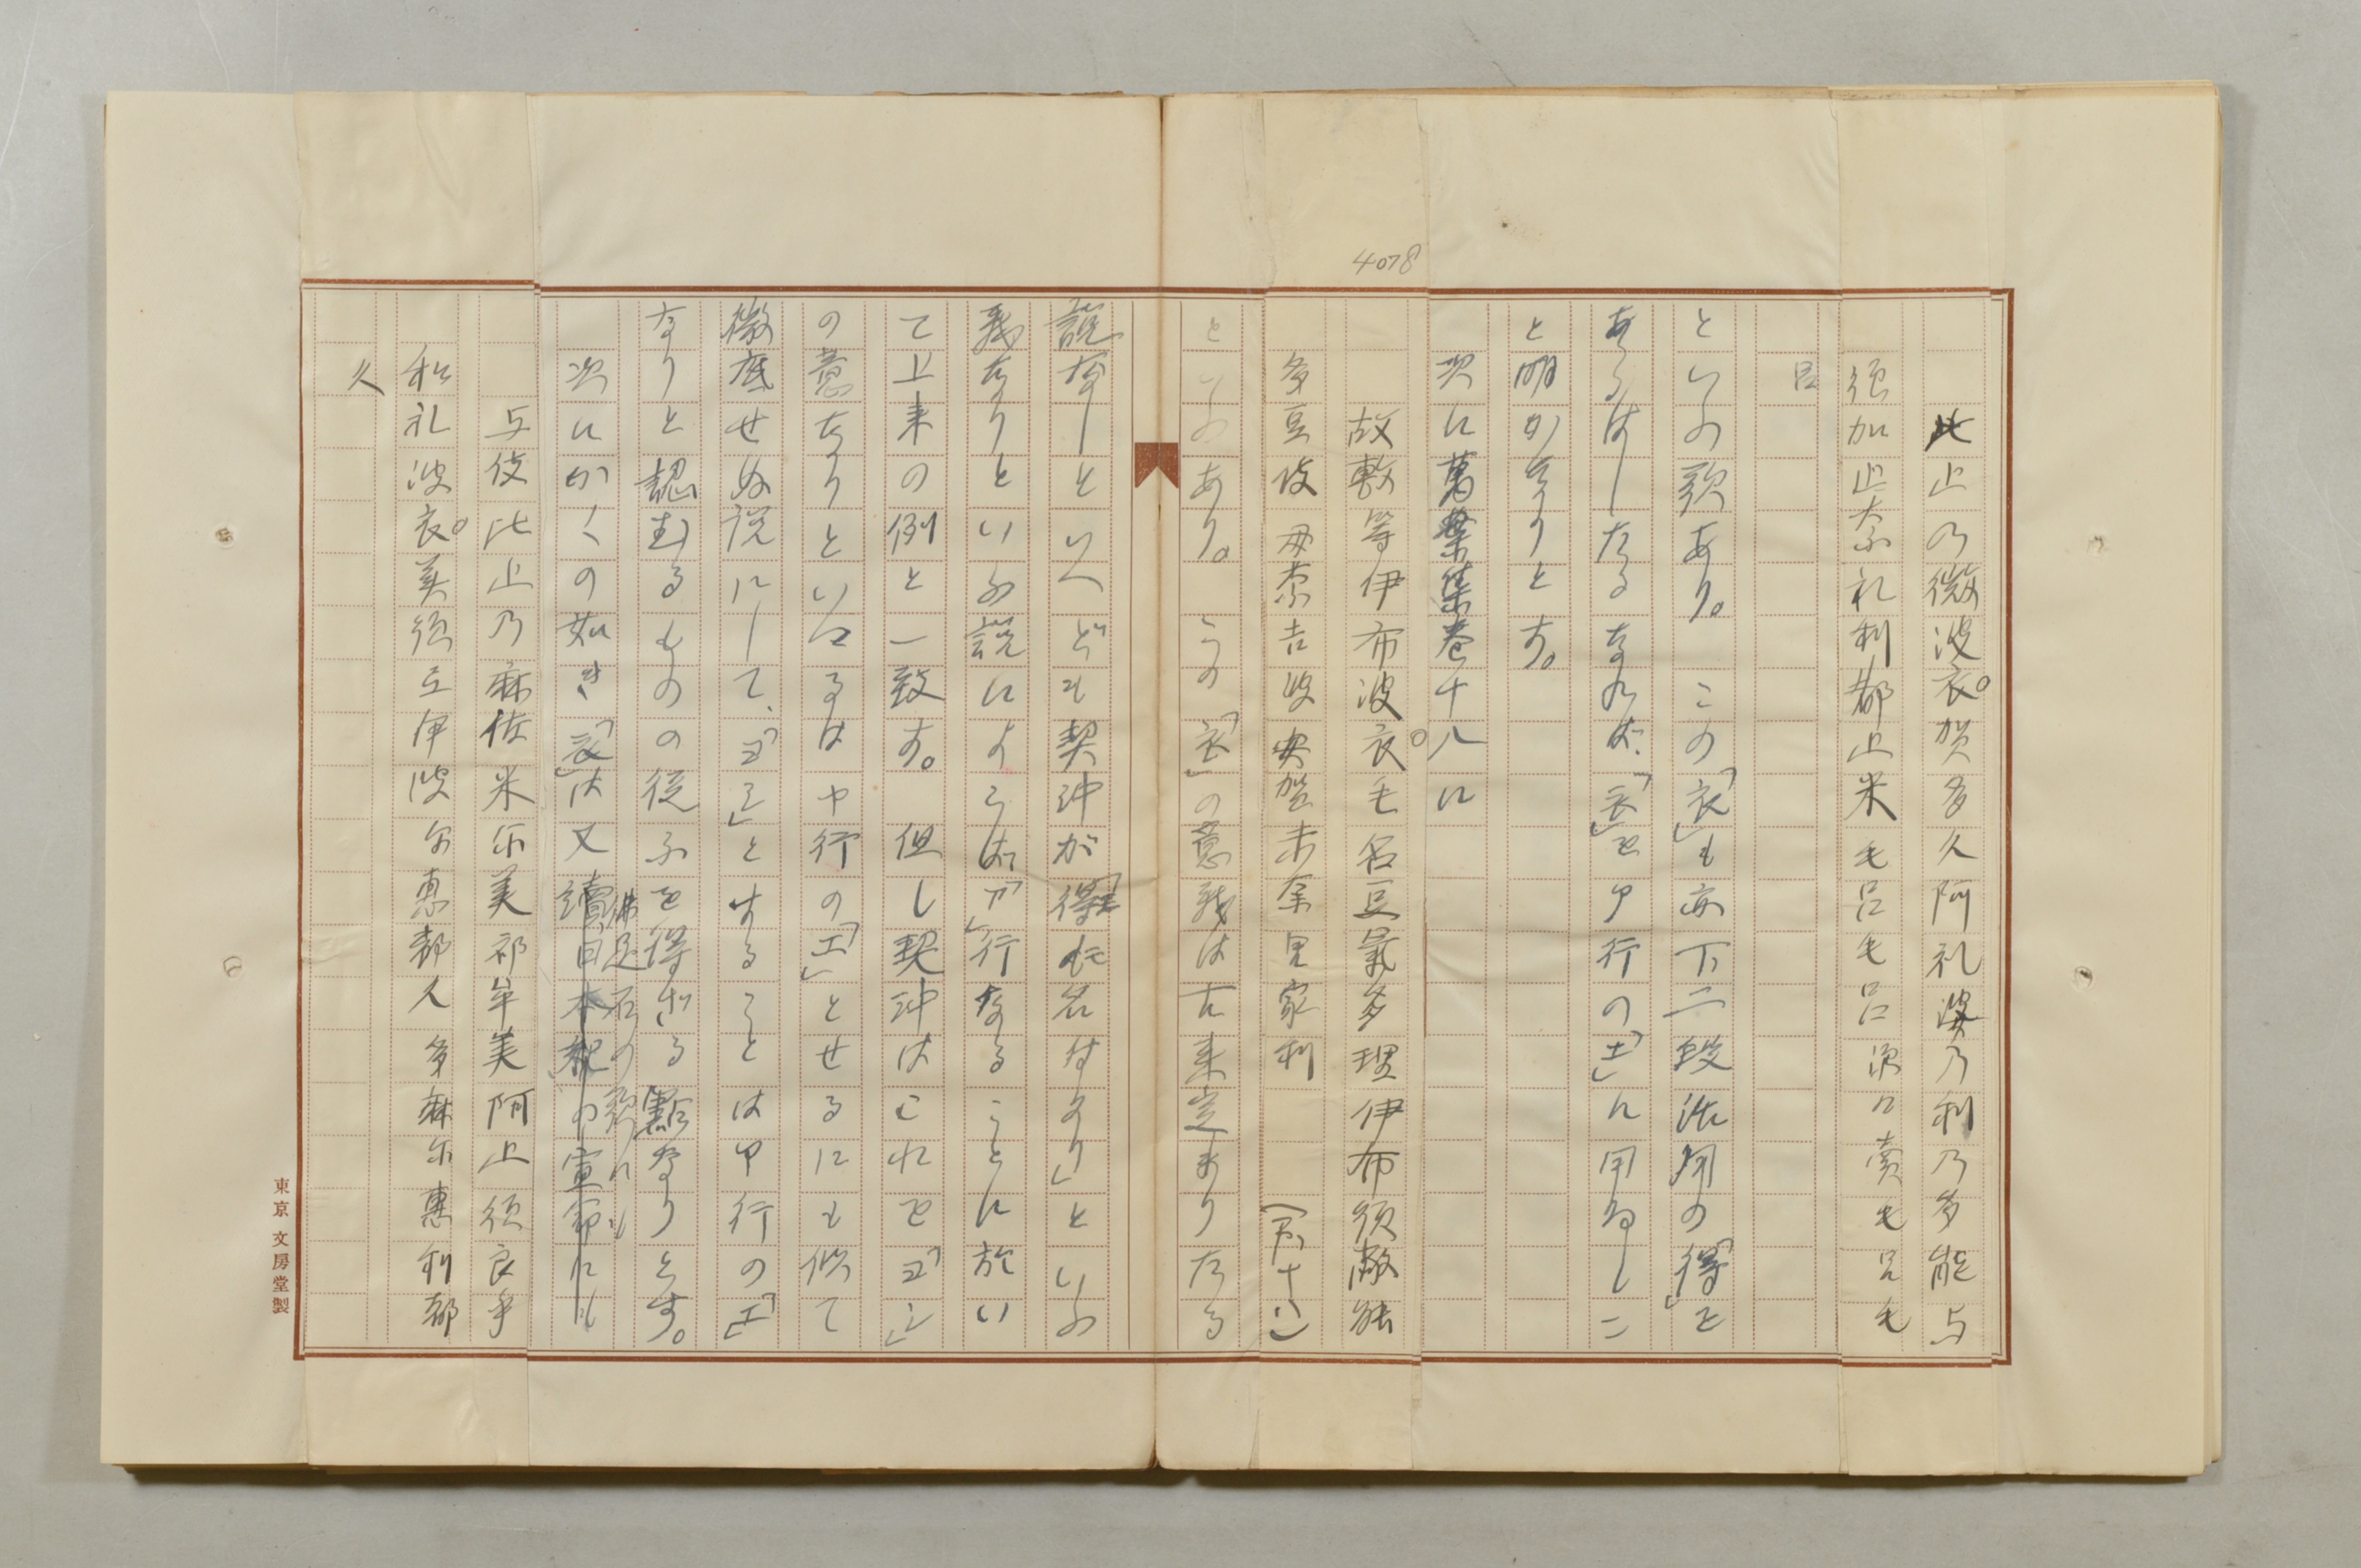 此止乃微波衣賀多久阿礼婆乃利乃多能与
須加止奈礼利都止米毛呂毛呂須々売毛呂毛
呂
といふ歌あり。この「衣」も亦下二段活用の「得」を
あらはしたるなれば、「衣」をア行の「エ」に用ゐしこ
と明かなりとす。
次に萬葉集巻十八に
4078
故敷等伊布波衣毛名豆氣多理伊布須敝能
多豆伎母奈吉波安賀未奈里家利
(四十八)
といふあり。この「衣」の意義は古来定まりたる
説なしといへども契沖が「得も名付たり」といふ
義なりといふ説によらば「ア」行なることに於い
て上来の例と一致す。但し契沖はこれを「ヨシ」
の意なりといへるはヤ行の「エ」とせるにも似て
徹底せぬ説にして、「ヨシ」とすることはヤ行の「エ」
なりと認むるものの従ふを得ざる點なりとす。
次にかくの如き「衣」は又續日本紀の宣命にも
佛足石の歌にも
与伎比止乃麻佐米尓美祁牟美阿止須良乎
和礼波衣美須弖伊波尓恵都久多麻尓恵利都
久
東京文房堂製